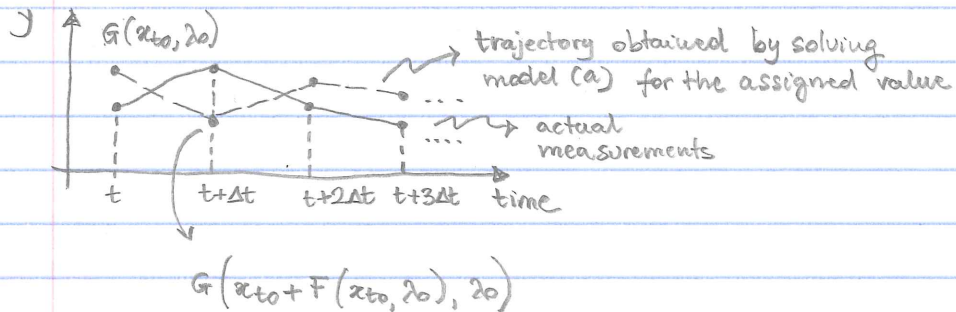 y
G(x_{t0}, λ0)
trajectory obtained by solving
model (a) for the assigned value
....
actual
measurements
....
t t+Δt t+2Δt t+3Δt time
G(x_{t0} + F(x_{t0}, λ0), λ0)